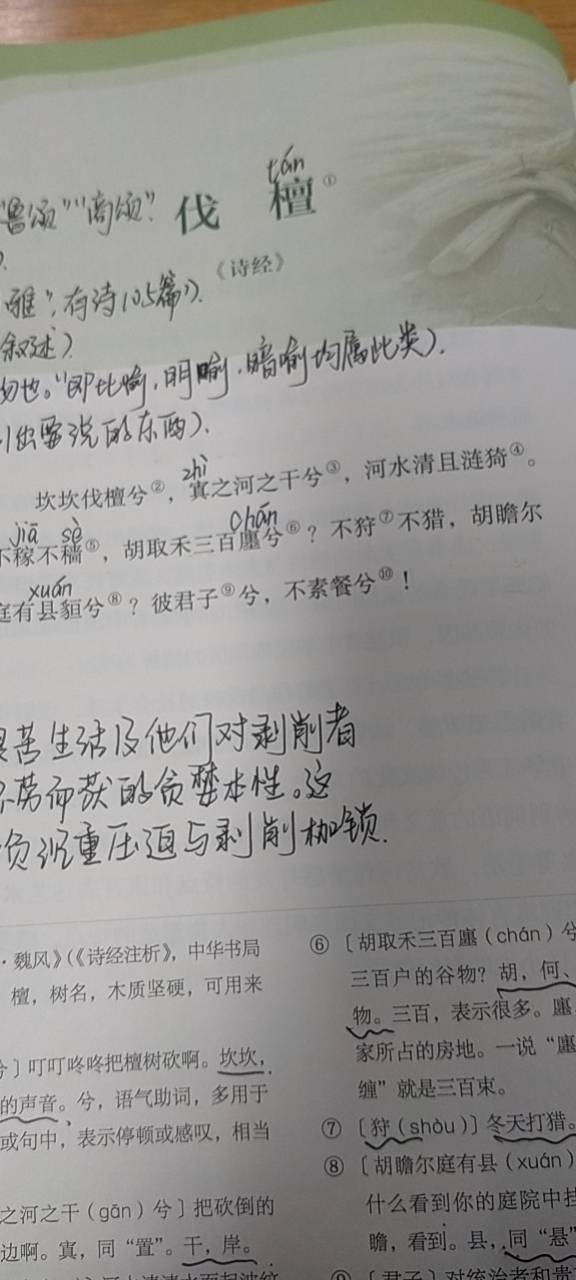 tán
"鲁颂""商颂".伐 檀①
《诗经》
雅",有诗105篇).
叙述).
物也。"即比喻,明喻.暗喻均属此类).
出要说的东西).
坎坎伐檀兮②,寘之河之干兮③,河水清且涟猗④。
zhì
jiā sè chán
不稼不穑⑤,胡取禾三百廛兮⑥?不狩⑦不猎,胡瞻尔
xuán
庭有县貆兮⑧?彼君子⑨兮,不素餐兮⑩!
苦生活及他们对剥削者
不劳而获的贪婪本性。这
负沉重压迫与剥削枷锁.
·魏风》(《诗经注析》,中华书局
檀,树名,木质坚硬,可用来
兮〕叮叮咚咚把檀树砍啊。坎坎,
的声音。兮,语气助词,多用于
或句中,表示停顿或感叹,相当
之河之干(gān)兮〕把砍倒的
边啊。寘,同"置"。干,岸。
⑥〔胡取禾三百廛(chán)兮
三百户的谷物?胡,何、
物。三百,表示很多。廛
家所占的房地。一说"廛
缠"就是三百束。
⑦〔狩(shòu)〕冬天打猎。
⑧〔胡瞻尔庭有县(xuán)
什么看到你的庭院中挂
瞻,看到。县,同"悬"
⑨〔君子〕对统治者和贵